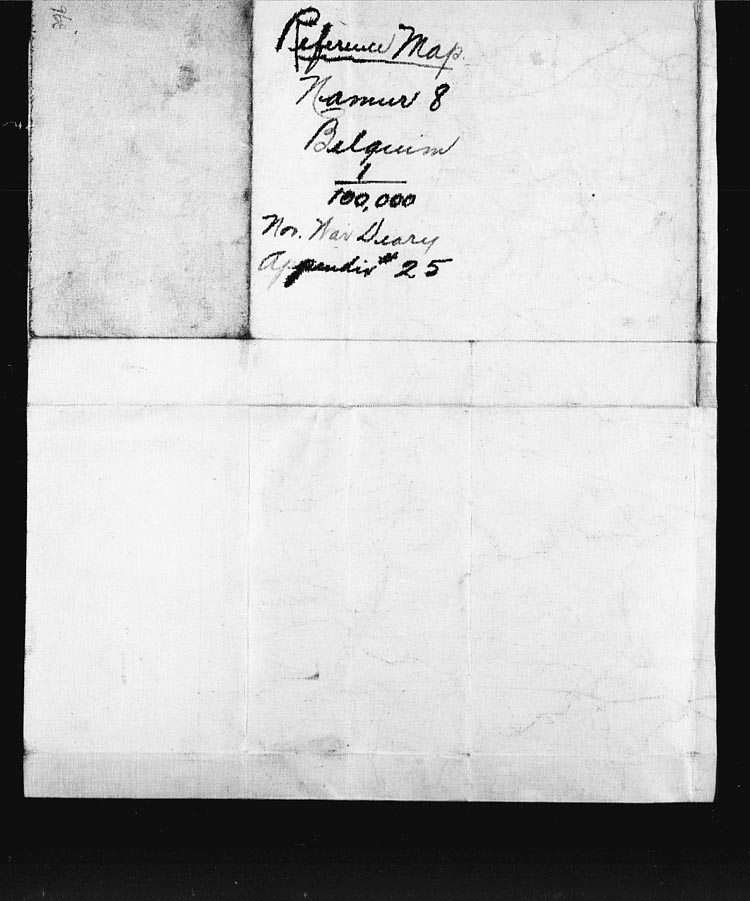 Reference Map.
Namur 8
Belguim
1
100,000
Nov. War Deary
Appendix # 25